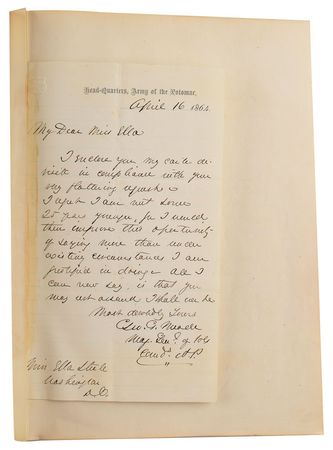 Head-Quarters, Army of the Potomac,
April 16 1864.
My Dear Miss Ella
I enclose you my carte de
visite in compliance with your
very flattering request
I regret I am not some
25 years younger, for I would
then improve this opportunity
of saying more than under
existing circumstances I am
justified in doing. All I
can now say, is that you
may rest assured I shall ever be
Most devotedly Yours
Geo. G. Meade
Maj. Genl. of Vols
Comd. A.P.
Miss Ella Steele
Washington
D.C.